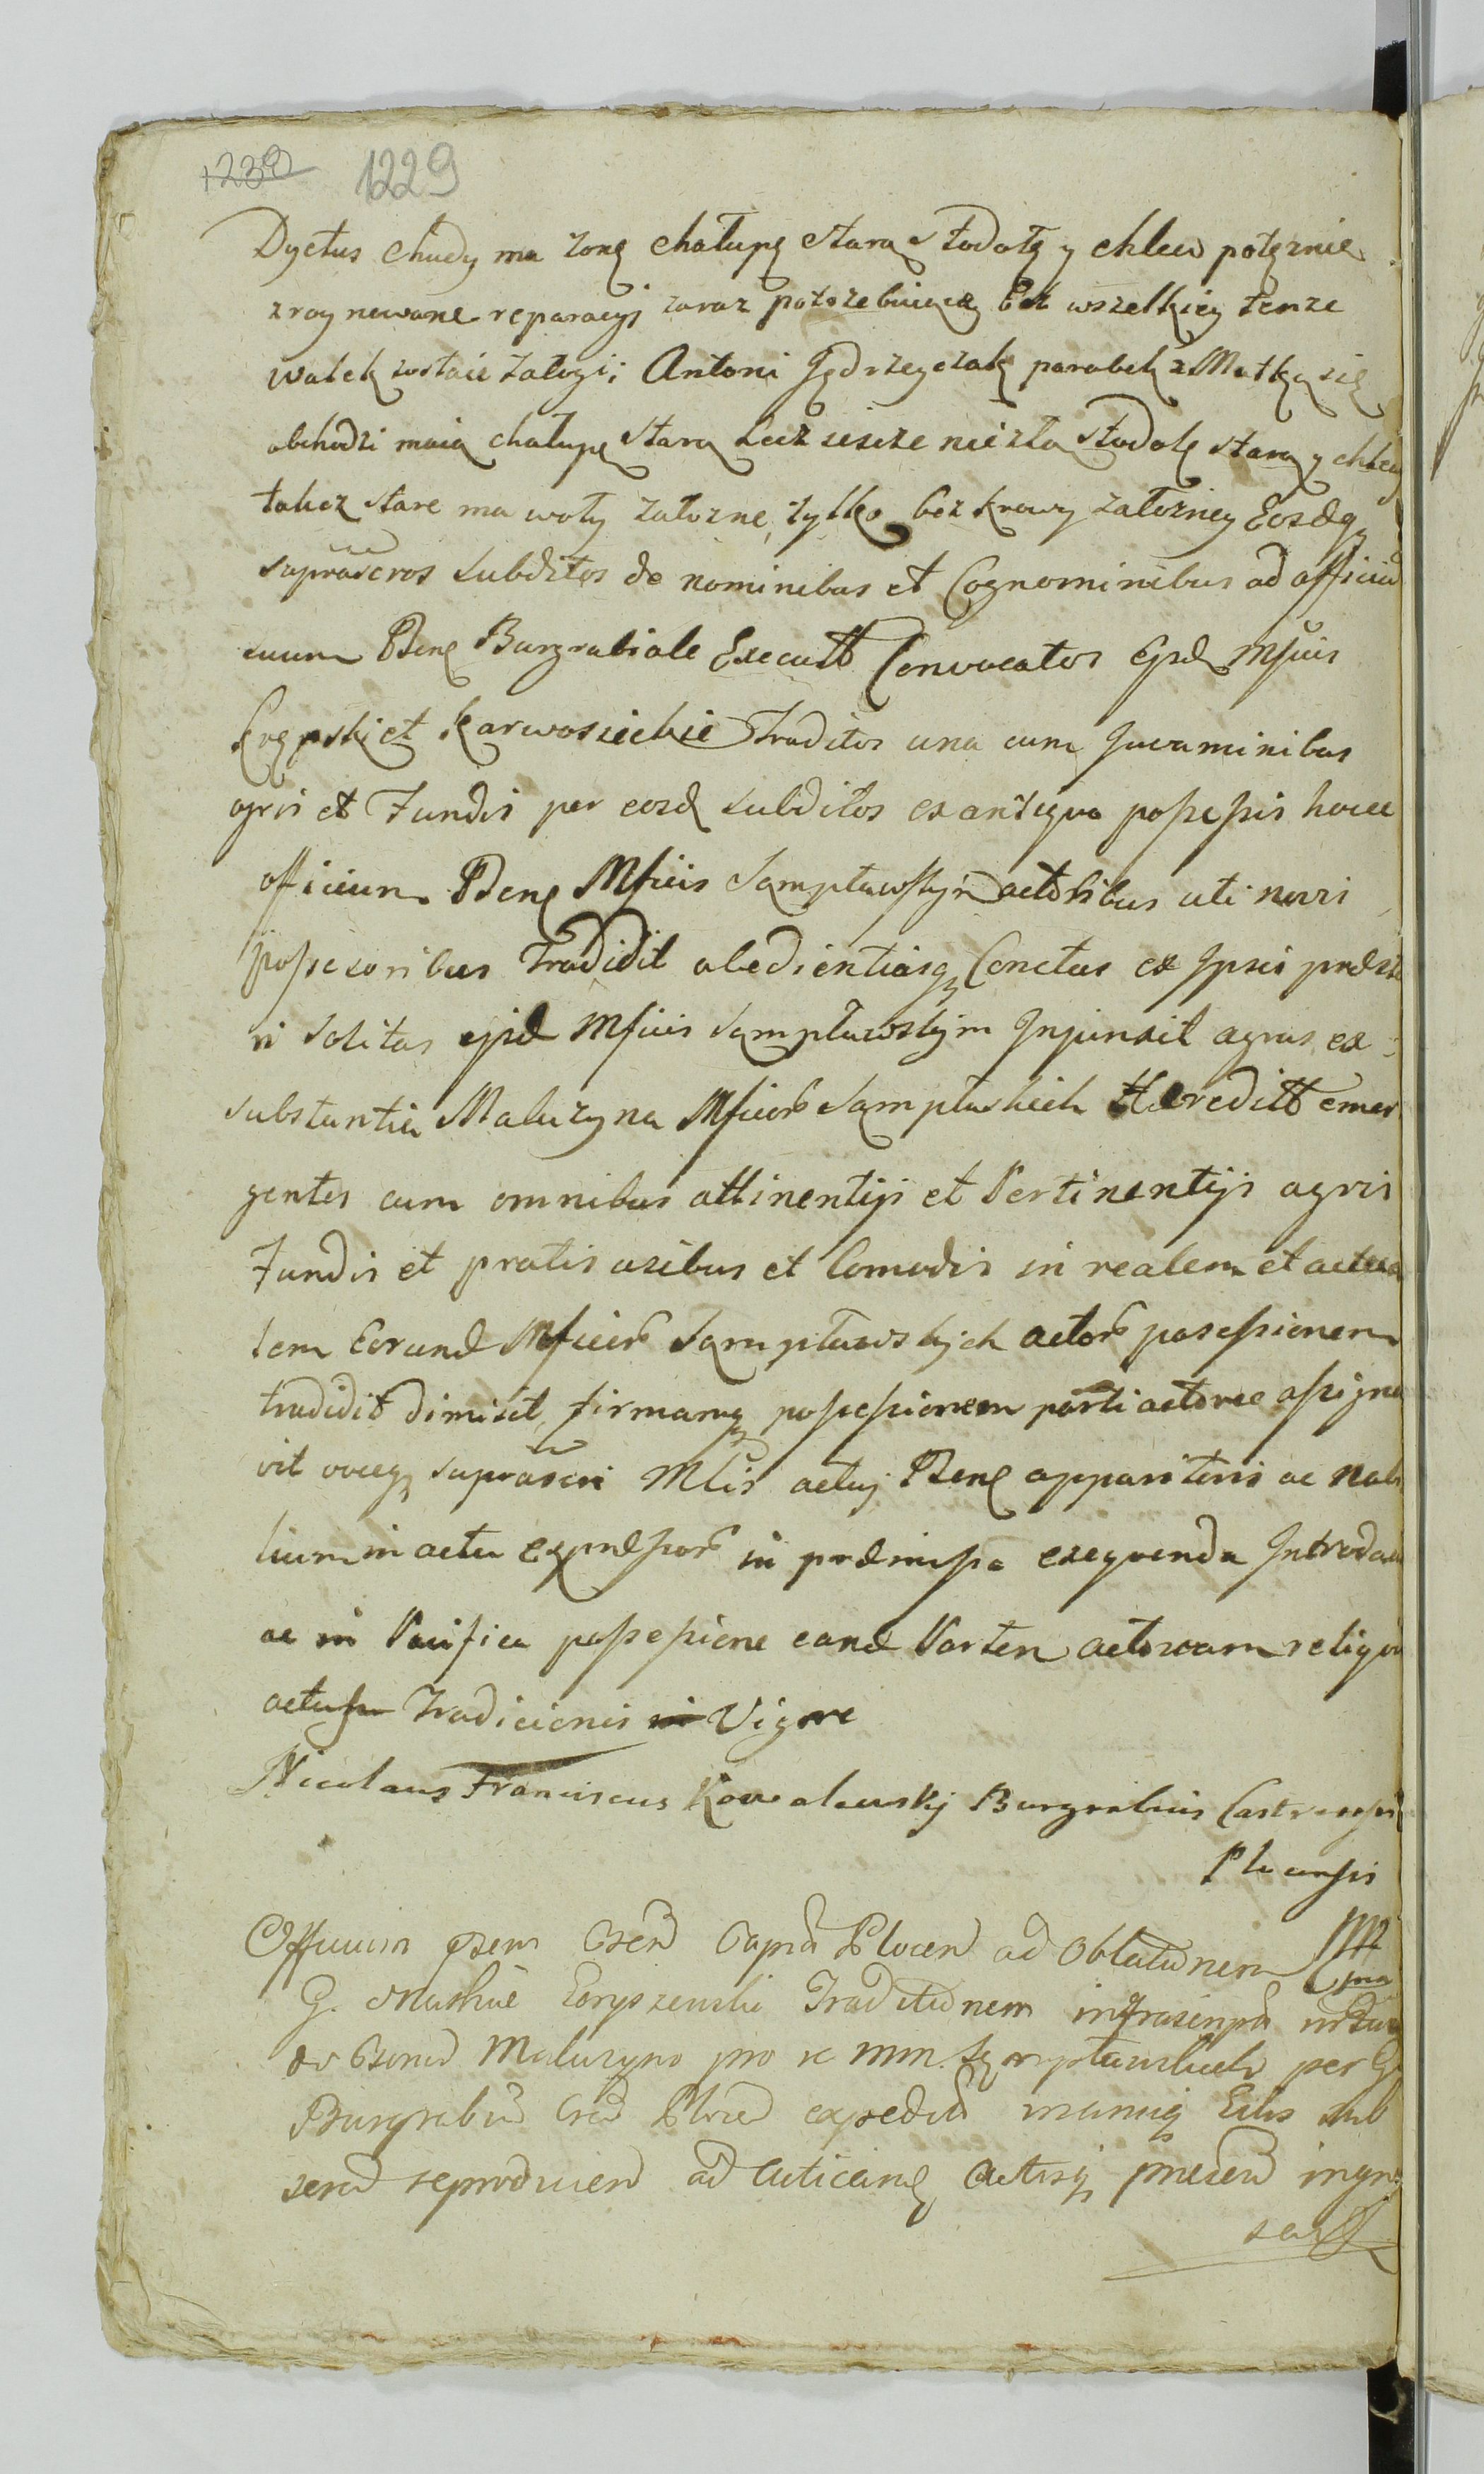 1230 1229
Dyctus Chudy ma żonę chałupę starą stodołę y chlew potęznie
zraynewane reparacyi zaraz potrzebuiące bez wszelkiey tenze
Walek zostaie załogi; Antoni Jędrzeyczak parobek z Matką się
obchodzi maią chałupę starą Lecz ieszcze niezłą stodołę starą y chlew
takez stare ma woły załozne, tylko bez krowy załozney Eosdq
supráscros subditos de nominibus et Cognominibus ad officiu
suum Psens Burgrabiale Executt Convocatos Ejsd Mficis
Kępski et Karwosieckie Traditos una cum Juvaminibus
agris et Fundis per eosd subditos ex antiquo possessis hocce
officium Psens Mficis Sąmpławskym actoribus uti novi
possesoribus Tradidit obedientiasq Conctas ex Ipsis præsta
ri solitas ejsd Mficis Sąmpławskym Injunxit agros ex
substantia Maluzyna Mficor Sąmpławskich Hæreditt emer
gentes cum omnibus attinentijs et Pertinentijs agris
Fundis et pratis usibus et Comodis in realem et actua
lem Eorund Mficor Sąmpławskych actor posessionem
tradidit dimisit, firmamq possessionem parti actoreæ assigna
vit voceq supráscri Mlis actuj Psens apparitoris ac Nobi
lium in actu expressor in præmissa exequenda Introdu
ac in Pacifica possessione eand Partem actoream reliqui
actu Tradicionis in Vigore
Nicolaus Franciscus Kowalewskj Burgrabius Castrensis
Plocensis
Officium psens Capta Plocen ad Oblationem
G. Mathiæ Traditionem infrascripta
Maluzyna pro MM. Sąmpławskich per G
Burgrabiu Plocen expedit manuq Eius sub
reproducen ad acticand Actisq præsen ingros